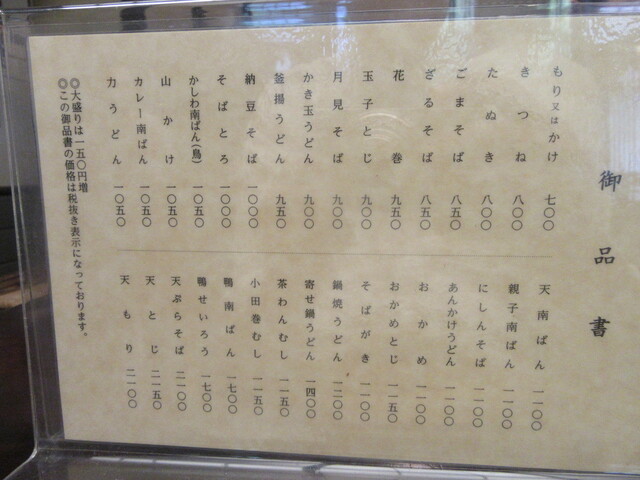 御品書
もり又はかけ 七〇〇
きつね 八〇〇
たぬき 八〇〇
ごまそば 八五〇
ざるそば 八五〇
花巻 九五〇
玉子とじ 九〇〇
月見そば 九〇〇
かき玉うどん 九〇〇
釜揚うどん 九五〇
納豆そば 一〇〇〇
そばとろ 一〇〇〇
かしわ南ばん(鳥) 一〇五〇
山かけ 一〇五〇
カレー南ばん 一〇五〇
力うどん 一〇五〇
天南ばん 一一〇〇
親子南ばん 一一〇〇
にしんそば 一一〇〇
あんかけうどん 一一〇〇
おかめ 一一〇〇
おかめとじ 一一五〇
そばがき 一一〇〇
鍋焼うどん 一二〇〇
寄せ鍋うどん 一四〇〇
茶わんむし 一一五〇
小田巻むし 一一五〇
鴨南ばん 一七〇〇
鴨せいろう 一七〇〇
天ぷらそば 二一〇〇
天とじ 二一五〇
天もり 二一〇〇
◎大盛りは一五〇円増
◎この御品書の価格は税抜き表示になっております。